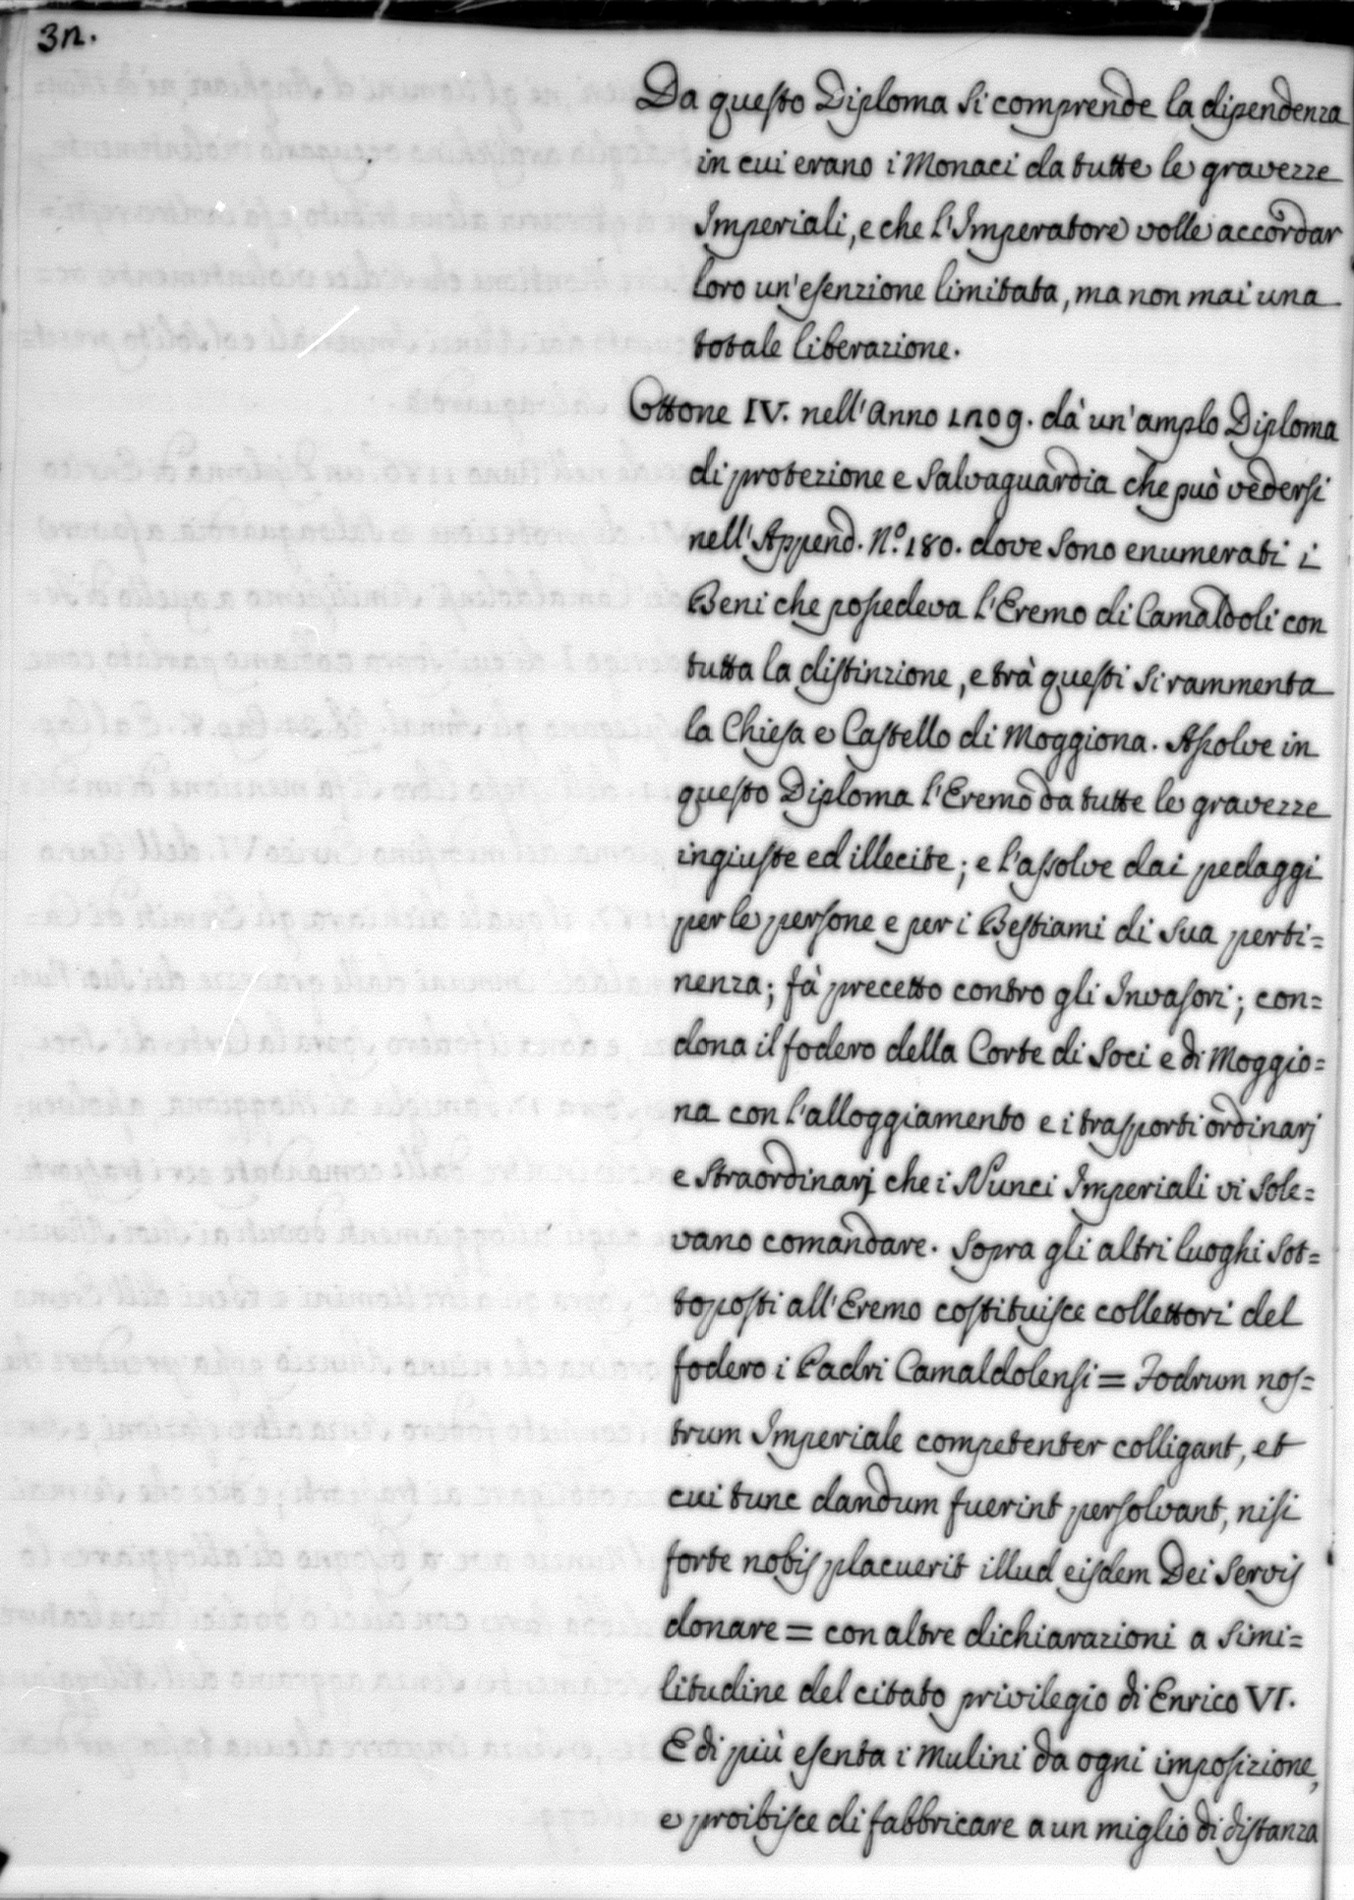 32.
Da questo Diploma si comprende la dipendenza
in cui erano i Monaci da tutte le gravezze
Imperiali, e che l'Imperatore volle accordar
loro un'esenzione limitata, ma non mai una
totale liberazione.
Ottone IV. nell'Anno 1209. dà un'amplo Diploma
di protezione e salvaguardia che può vedersi
nell'Append. N.º 180. dove sono enumerati i
Beni che possedeva l'Eremo di Camaldoli con
tutta la distinzione, e trà questi si rammenta
la Chiesa e Castello di Moggiona. Assolve in
questo Diploma l'Eremo da tutte le gravezze
ingiuste ed illecite; e l'assolve dai pedaggi
per le persone e per i Bestiami di sua perti=
nenza; fà precetto contro gli Invasori; con=
dona il fodero della Corte di Soci e di Moggio=
na con l'alloggiamento e i trasporti ordinarj
e straordinarj che i Nunci Imperiali vi sole=
vano comandare. Sopra gli altri luoghi sot=
toposti all'Eremo costituisce collettori del
fodero i Padri Camaldolensi = Fodrum nos=
trum Imperiale competenter colligant, et
cui tunc dandum fuerint persolvant, nisi
forte nobis placuerit illud eisdem Dei servis
donare = con altre dichiarazioni a simi=
litudine del citato privilegio di Enrico VI.
E di più esenta i Mulini da ogni imposizione,
e proibisce di fabbricare a un miglio di distanza